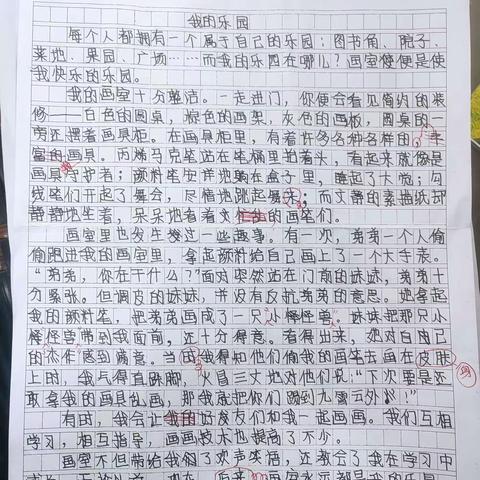 我的乐园
每个人都拥有一个属于自己的乐园：图书角、院子、
菜地、果园、广场……而我的乐园在哪儿？画室便是使
我快乐的乐园。
我的画室十分整洁。一走进门，你便会看见简约的装
修——白色的圆桌，棕色的画架，灰色的画板，圆桌的一
旁还摆着画具柜。在画具柜里，有着许多各种各样的、丰
富的画具。丙烯马克笔站在笔桶里抬着头，看起来就像是
画具守护者；颜料笔安详地躺在盒子里，睡起了大觉；勾
线笔们开起了舞会，尽情地跳起舞来；而文静的素描纸却
静静地坐着，呆呆地看着的画笔们。
画室里也发生过一些趣事。有一次，弟弟一个人偷
偷跑进我的画室里，拿起颜料给自己画上了一个大手表。
“弟弟，你在干什么？”面对突然站在门前的妹妹，弟弟十
分紧张。但调皮的妹妹，并没有反抗弟弟的意思。她拿起
我的颜料笔，把弟弟画成了一只小怪怪兽。妹妹把那只小
怪怪兽带到我面前，还十分得意。看得出来，她对自己
的杰作感到满意。当我得知他们偷我的画笔去画在皮肤
上时，我气得直跺脚，火冒三丈地对他们说：“下次要是还
敢拿我的画具乱画，那我就把你们踢到九霄云外！”
有时，我会让好友们和我一起画画。我们互相
学习，相互指导，画画技术也提高了不少。
画室不但带给我们了欢声笑语，还教会了我在学习中